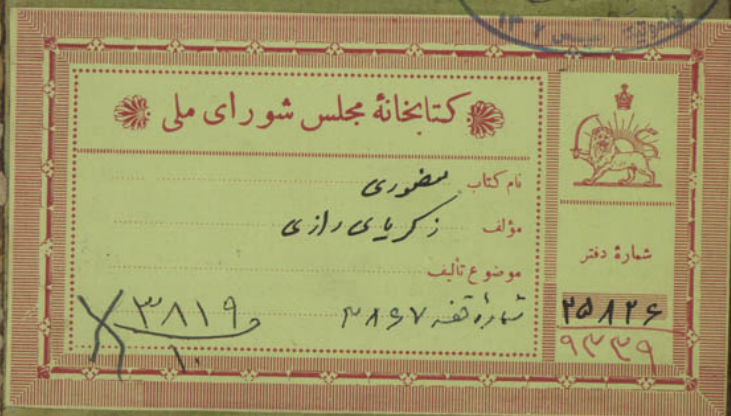 ۱۳۰۲
کتابخانهٔ مجلس شورای ملی
نام کتاب منصوری
مؤلف زکریای رازی
موضوع تألیف
شمارهٔ قفسه ۳۸۶۷
۳۸۱۹
۱۰
شمارهٔ دفتر
۲۵۸۲۶
۹۳۳۹